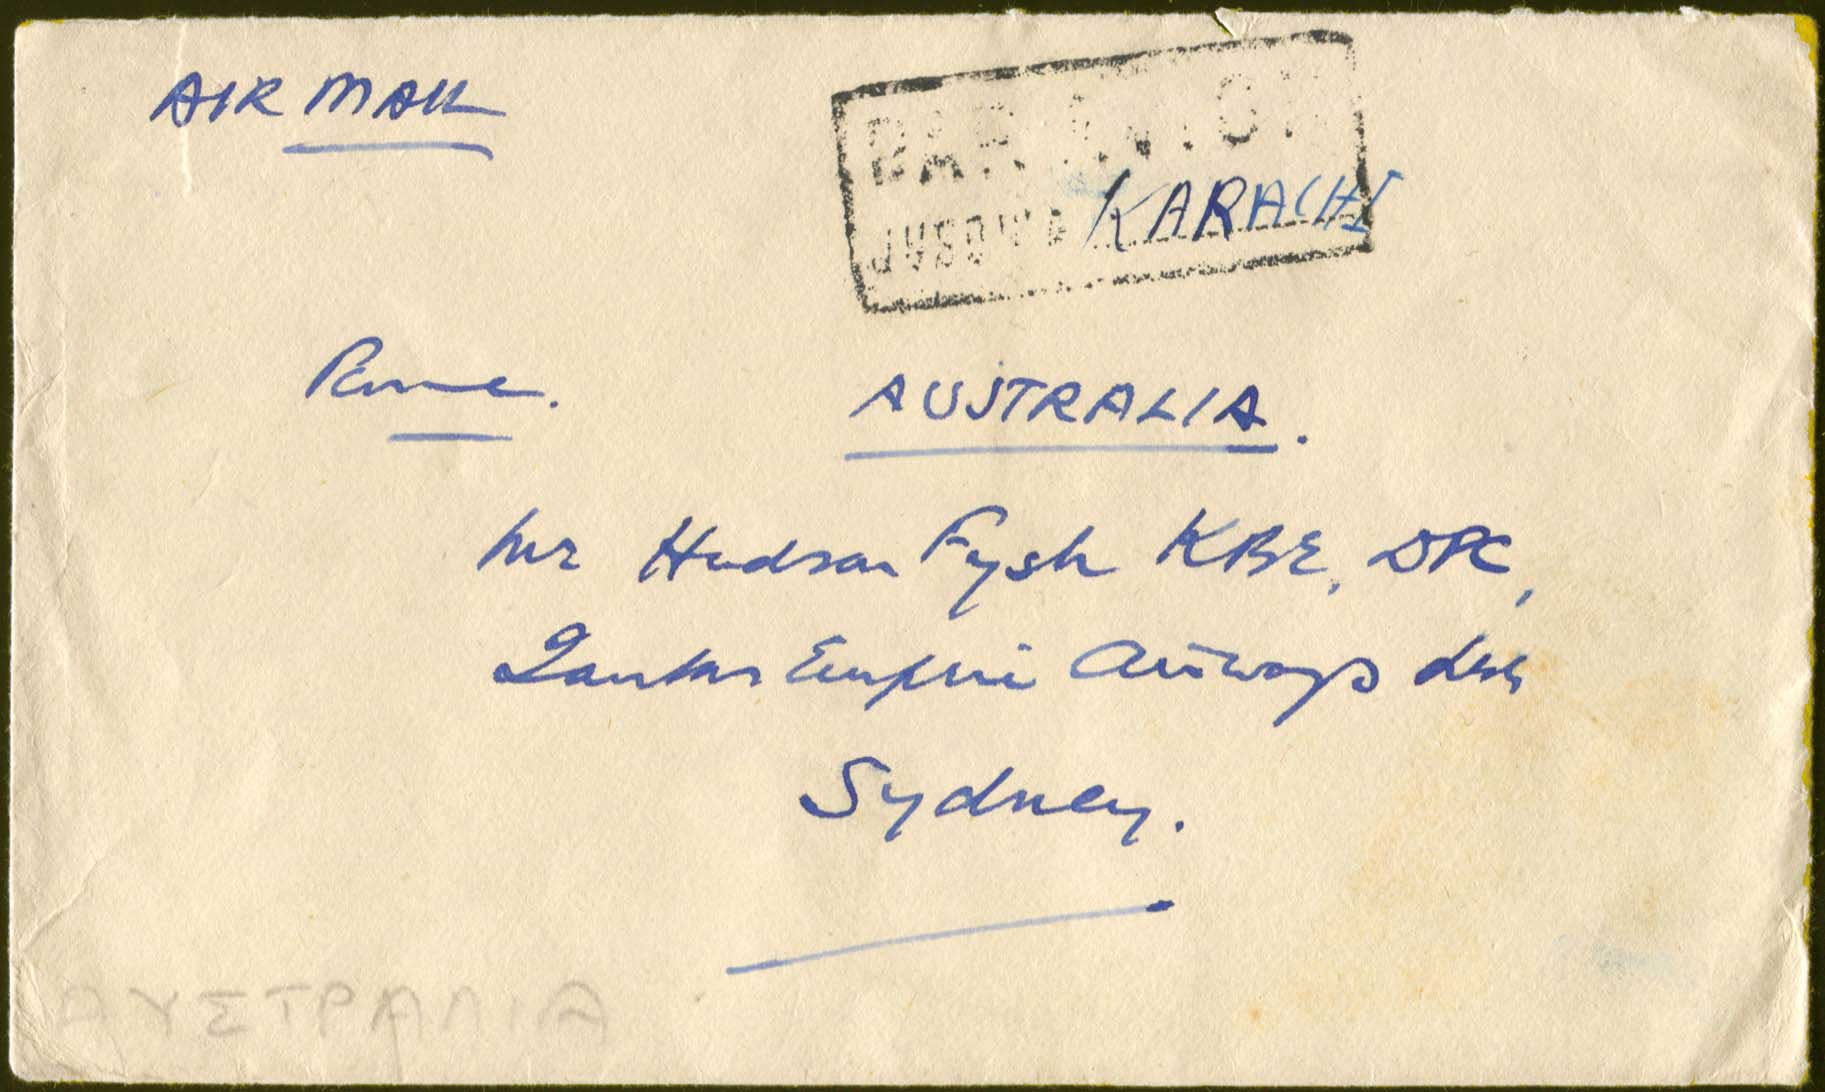 AIR MAIL
PAR AVION
JUSQU'A KARACHI
AUSTRALIA.
Mr Hudson Fysh KBE, DFC,
Qantas Empire Airways Ltd
Sydney.
ΑΥΣΤΡΑΛΙΑ